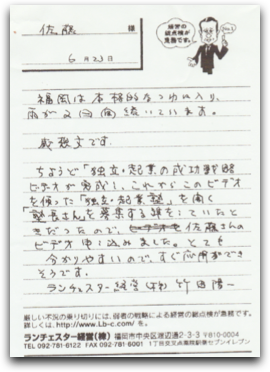 佐藤 様
6月23日
経営の
総点検が
急務です。
福岡は本格的なつゆに入り、
雨が 続いています。
取急文です。
ちょうど「独立・起業の成功戦略
ビデオが完成し、これからこのビデオ
を使った「独立・起業塾」を開く
「塾長さんを募集する 」としていたと
きだったので、 佐藤さんの
ビデオ申し込みました。とても
分かりやすいので、すぐ応用ができ
そうです。
ランチェスター経営(株) 竹田陽一
厳しい不況の乗り切りには、弱者の戦略による経営の総点検が急務です。
詳しくは、http://www.Lb-c.com/ を。
ランチェスター経営(株) 福岡市中央区渡辺通2-3-3 〒810-0004
TEL 092-781-6122 FAX 092-781-6001 1丁目交叉点南院駅東セブンイレブン